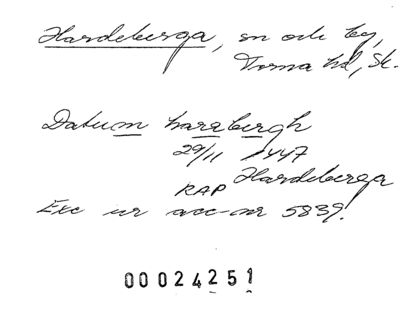 Hardeberga, sn och by,
Torna hd, Sk.
Datum harrbergh
29/11 1447
Hardeberga
RAP
Exc ur acc-nr 5839.
00024251